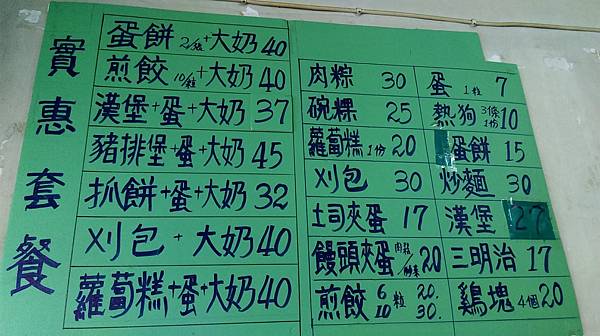 實惠套餐
蛋餅2/粒+大奶40
煎餃10/粒+大奶40
漢堡+蛋+大奶37
豬排堡+蛋+大奶45
抓餅+蛋+大奶32
刈包+大奶40
蘿蔔糕+蛋+大奶40
肉粽 30
碗粿 25
蘿蔔糕1份20
刈包 30
土司夾蛋 17
饅頭夾蛋 20
煎餃 6 10 粒 20. 30.
蛋1粒 7
熱狗3條1份10
蛋餅 15
炒麵 30
漢堡 27
三明治 17
鷄塊4個20